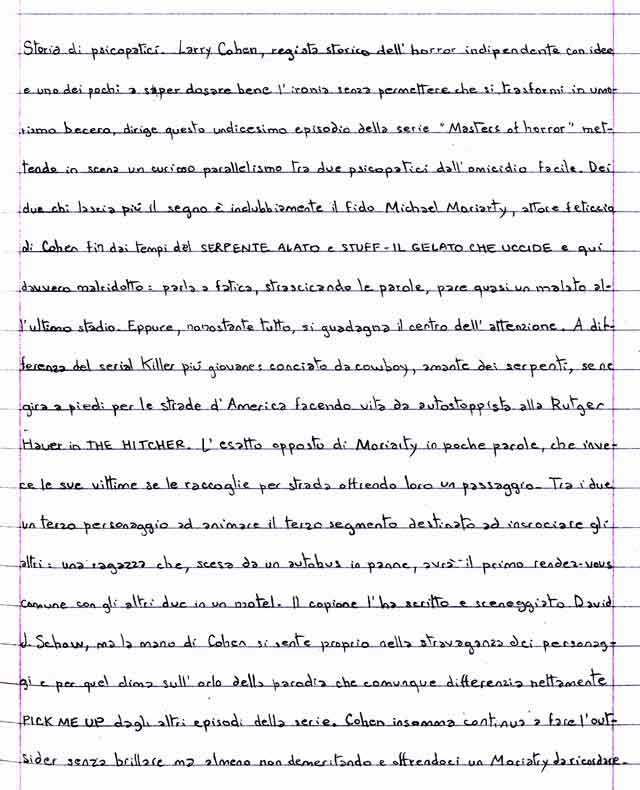 Storia di psicopatici. Larry Cohen, regista storico dell'horror indipendente con idee
e uno dei pochi a saper dosare bene l'ironia senza permettere che si trasformi in umo-
rismo becero, dirige questo undicesimo episodio della serie "Masters of horror" met-
tendo in scena un curioso parallelismo tra due psicopatici dall'omicidio facile. Dei
due chi lascia più il segno è indubbiamente il fido Michael Moriarty, attore feticcio
di Cohen fin dai tempi del SERPENTE ALATO e STUFF - IL GELATO CHE UCCIDE e qui
davvero malridotto: parla a fatica, strascicando le parole, pare quasi un malato al-
l'ultimo stadio. Eppure, nonostante tutto, si guadagna il centro dell'attenzione. A dif-
ferenza del serial Killer più giovane: conciato da cowboy, amante dei serpenti, se ne
gira a piedi per le strade d'America facendo vita da autostoppista alla Rutger
Hauer in THE HITCHER. L'esatto opposto di Moriarty in poche parole, che inve-
ce le sue vittime se le raccoglie per strada offrendo loro un passaggio. Tra i due
un terzo personaggio ad animare il terzo segmento destinato ad incrociare gli
altri: una ragazza che, scesa da un autobus in panne, avrà il primo rendez-vous
comune con gli altri due in un motel. Il copione l'ha scritto e sceneggiato David
J. Schow, ma la mano di Cohen si sente proprio nella stravaganza dei personag-
gi e per quel clima sull'orlo della parodia che comunque differenzia nettamente
PICK ME UP dagli altri episodi della serie. Cohen insomma continua a fare l'out-
sider senza brillare ma almeno non demeritando e offrendoci un Moriatry da ricordare.